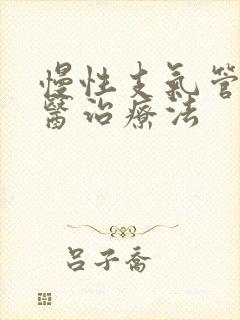 慢性支氣管
醫治療法
呂子喬